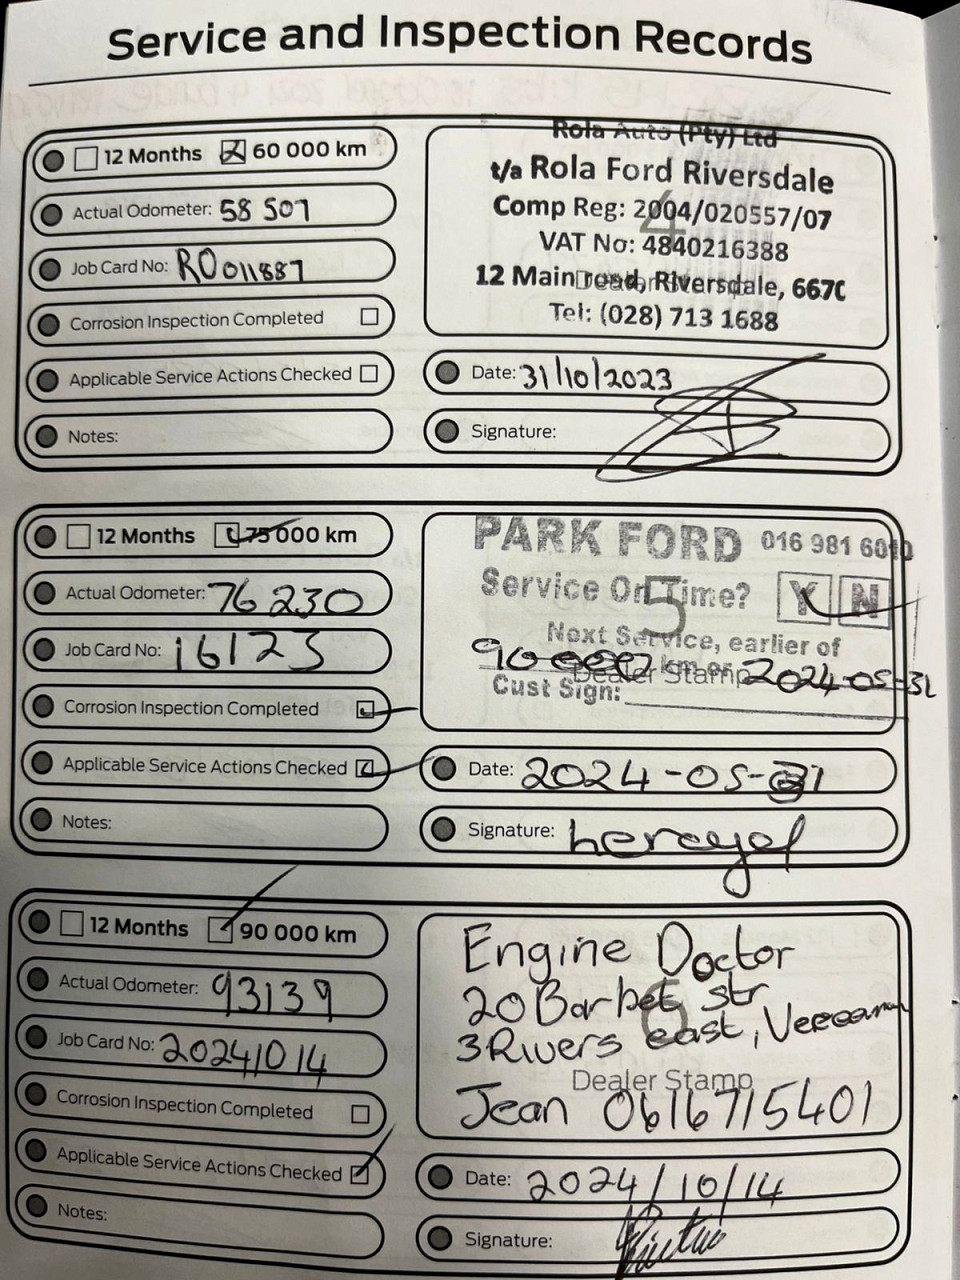 Service and Inspection Records
12 Months 60 000 km
Actual Odometer: 58 507
Job Card No: RO011887
Corrosion Inspection Completed
Applicable Service Actions Checked
Notes:
Rola Auto (Pty) Ltd
t/a Rola Ford Riversdale
4
Comp Reg: 2004/020557/07
VAT No: 4840216388
12 Main road, Riversdale, 6670
Dealer Stamp
Tel: (028) 713 1688
Date: 31/10/2023
Signature:
12 Months 75 000 km
Actual Odometer: 76 230
Job Card No: 16123
Corrosion Inspection Completed
Applicable Service Actions Checked
Notes:
PARK FORD 016 981 6010
Service On Time? Y N
5
Next Service, earlier of
90 000 km or 2024-05-31
Dealer Stamp
Cust Sign:
Date: 2024-05-31
Signature:
12 Months 90 000 km
Actual Odometer: 93139
Job Card No: 20241014
Corrosion Inspection Completed
Applicable Service Actions Checked
Notes:
Engine Doctor
20 Barbet str
6
3Rivers east,
Dealer Stamp
Jean 0616715401
Date: 2024/10/14
Signature: